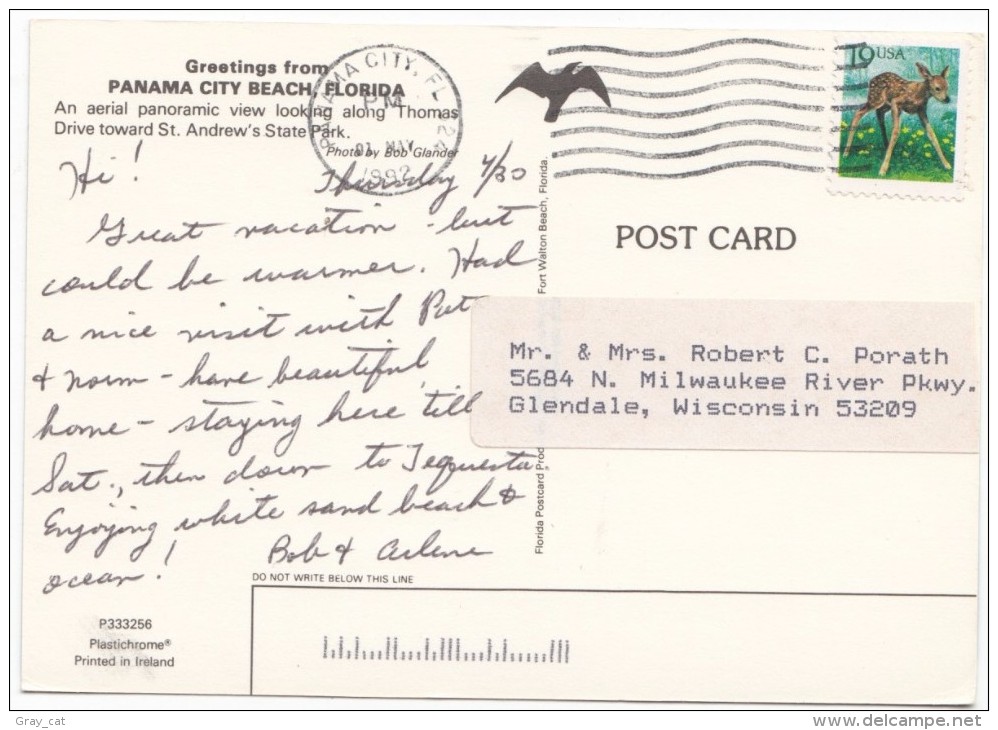 Greetings from
PANAMA CITY BEACH, FLORIDA
An aerial panoramic view looking along Thomas
Drive toward St. Andrew's State Park.
Photo by Bob Glander
PANAMA CITY, FL 324
PM
01 MAY
1992
19 USA
Hi! Thursday 4/30
Great vacation - but
could be warmer. Had
a nice visit with Pat
& Norm - have beautiful
home - staying here till
Sat., then down to Tequesta.
Enjoying white sand beach &
ocean!
Bob & Arlene
POST CARD
Mr. & Mrs. Robert C. Porath
5684 N. Milwaukee River Pkwy.
Glendale, Wisconsin 53209
Florida Postcard Prod
Fort Walton Beach, Florida.
DO NOT WRITE BELOW THIS LINE
P333256
Plastichrome®
Printed in Ireland
Gray_cat
delcampe.net